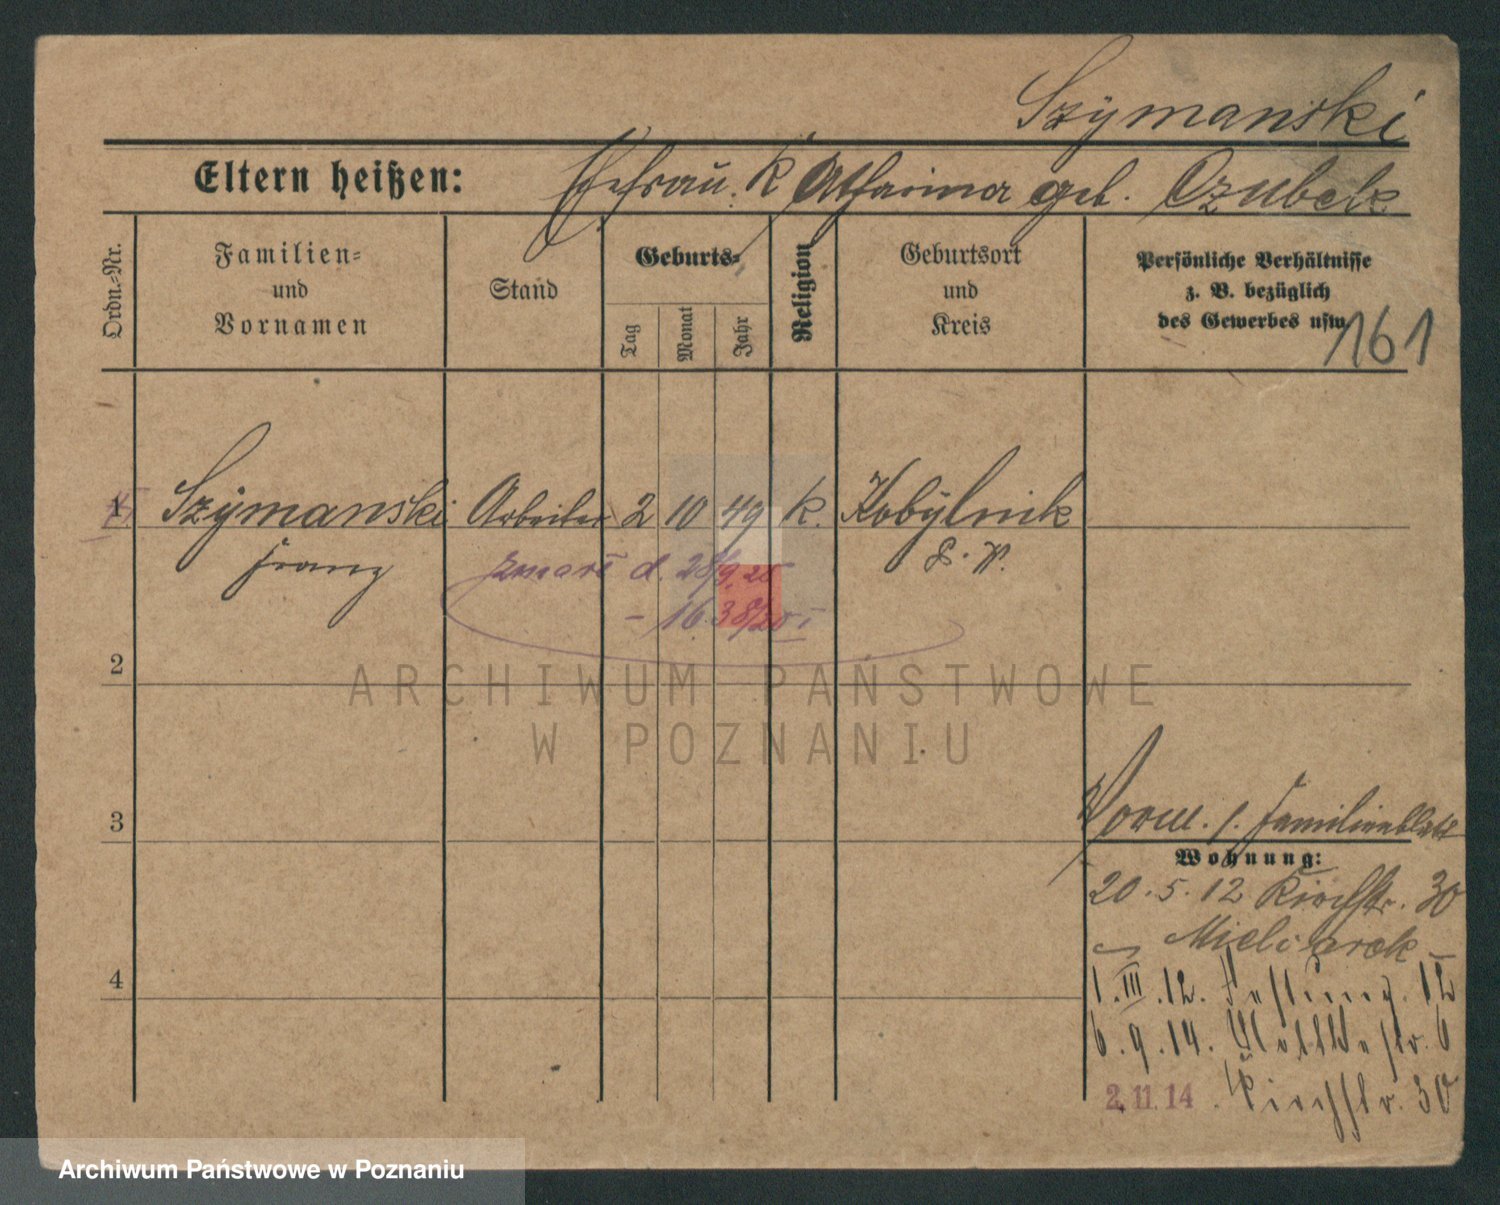 Szymanski
Eltern heißen: Ehefrau Katharina geb. Czubek
Ordn.-Nr.
Familien-
und
Vornamen
Stand
Geburts-
Tag
Monat
Jahr
Religion
Geburtsort
und
Kreis
Persönliche Verhältnisse
z. B. bezüglich
des Gewerbes usw.
161
1 Szymanski Arbeiter 2 10 49 k. Kobylnik
Franz
zmarł d. 28/9. 25
- 1638/25 I
2
ARCHIWUM PAŃSTWOWE
W POZNANIU
3
f. Familienblatt
Wohnung:
20.5.12 Kirchstr. 30
Mielcarek
4
1.III.12. Festung. 12
6.9.14.
2.11.14. Kirchstr. 30
Archiwum Państwowe w Poznaniu